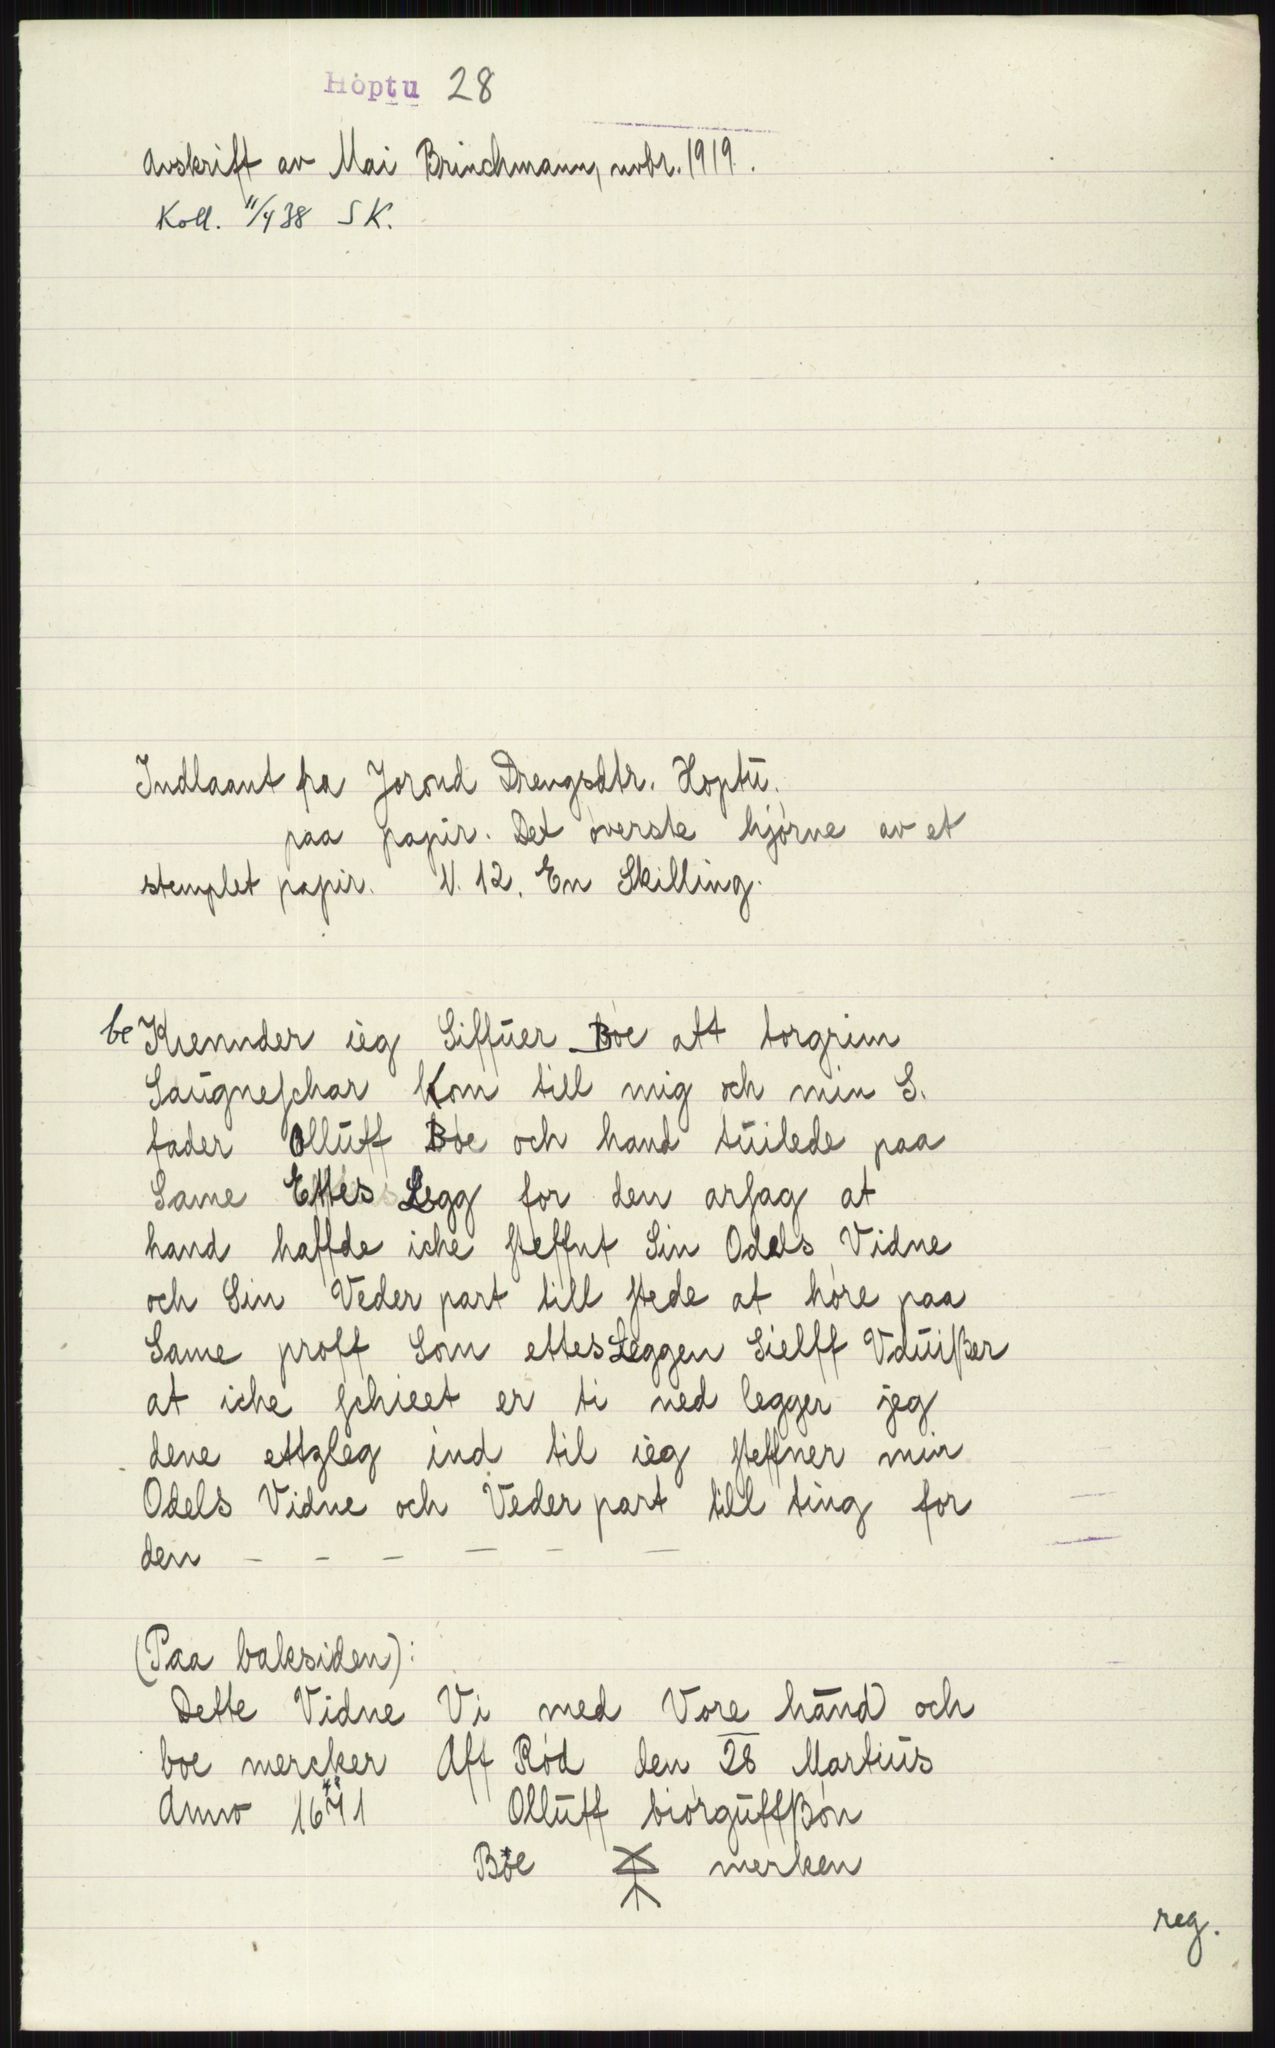 Hóptu 28
Avskrift av Mai Brinchmann, novbr. 1919.
Koll. 11/4 38 S K.
Indlaant fra Jorond Drengsdtr. Hoptu.
paa papir. Det øverste hjørne av et
stemplet papir. N. 12. En Skilling.
be Kiennder ieg Siffuer Bóe att torgrim
Saugneschar Kom till mig och min S.
fader Olluff Bóe och hand tuilede paa
Same Ettes Legg for den arsag at
hand haffde iche steffnt Sin Odels Vidne
och Sin Veder part till stede at hóre paa
Same proff Som ettesLeggen Sielff Vduisser
at iche schieet er ti ned legger jeg
dene ettzleg ind til ieg steffner min
Odels Vidne och Veder part till ting for
den - - - - - -
(Paa baksiden):
Dette Vidne Vi med Vore hānd och
boe mercker Aff Ród den 28 Martius
Anno 1671 Olluff biórguffßón
Bóe merken
reg.